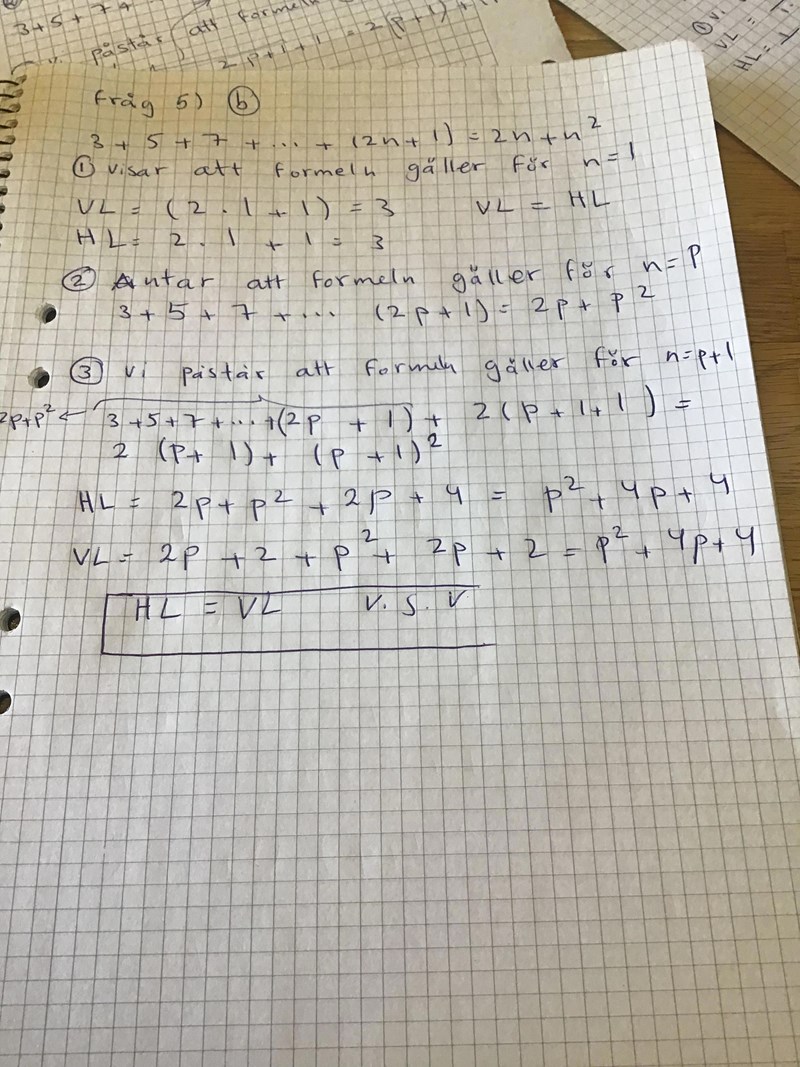 3+5+7+
påstår att formeln
2p+1+1 = 2(p+1)+
① vi
VL =
HL = 1
fråg 5) ⓑ
3 + 5 + 7 + ... + (2n+1) = 2n+n²
① visar att formeln gäller för n=1
VL = (2 · 1 + 1) = 3 VL = HL
HL= 2 · 1 + 1 = 3
② Antar att formeln gäller för n=p
3 + 5 + 7 + ... (2p+1) = 2p+ p²
③ vi påstår att formeln gäller för n=p+1
2p+p² ← 3+5+7+...+(2p + 1) + 2(p+1+1) =
2 (p+ 1) + (p +1)²
HL = 2p+p² + 2p + 4 = p²+4p+4
VL = 2p +2 + p²+ 2p + 2 = p²+ 4p+4
HL = VL V.S.V